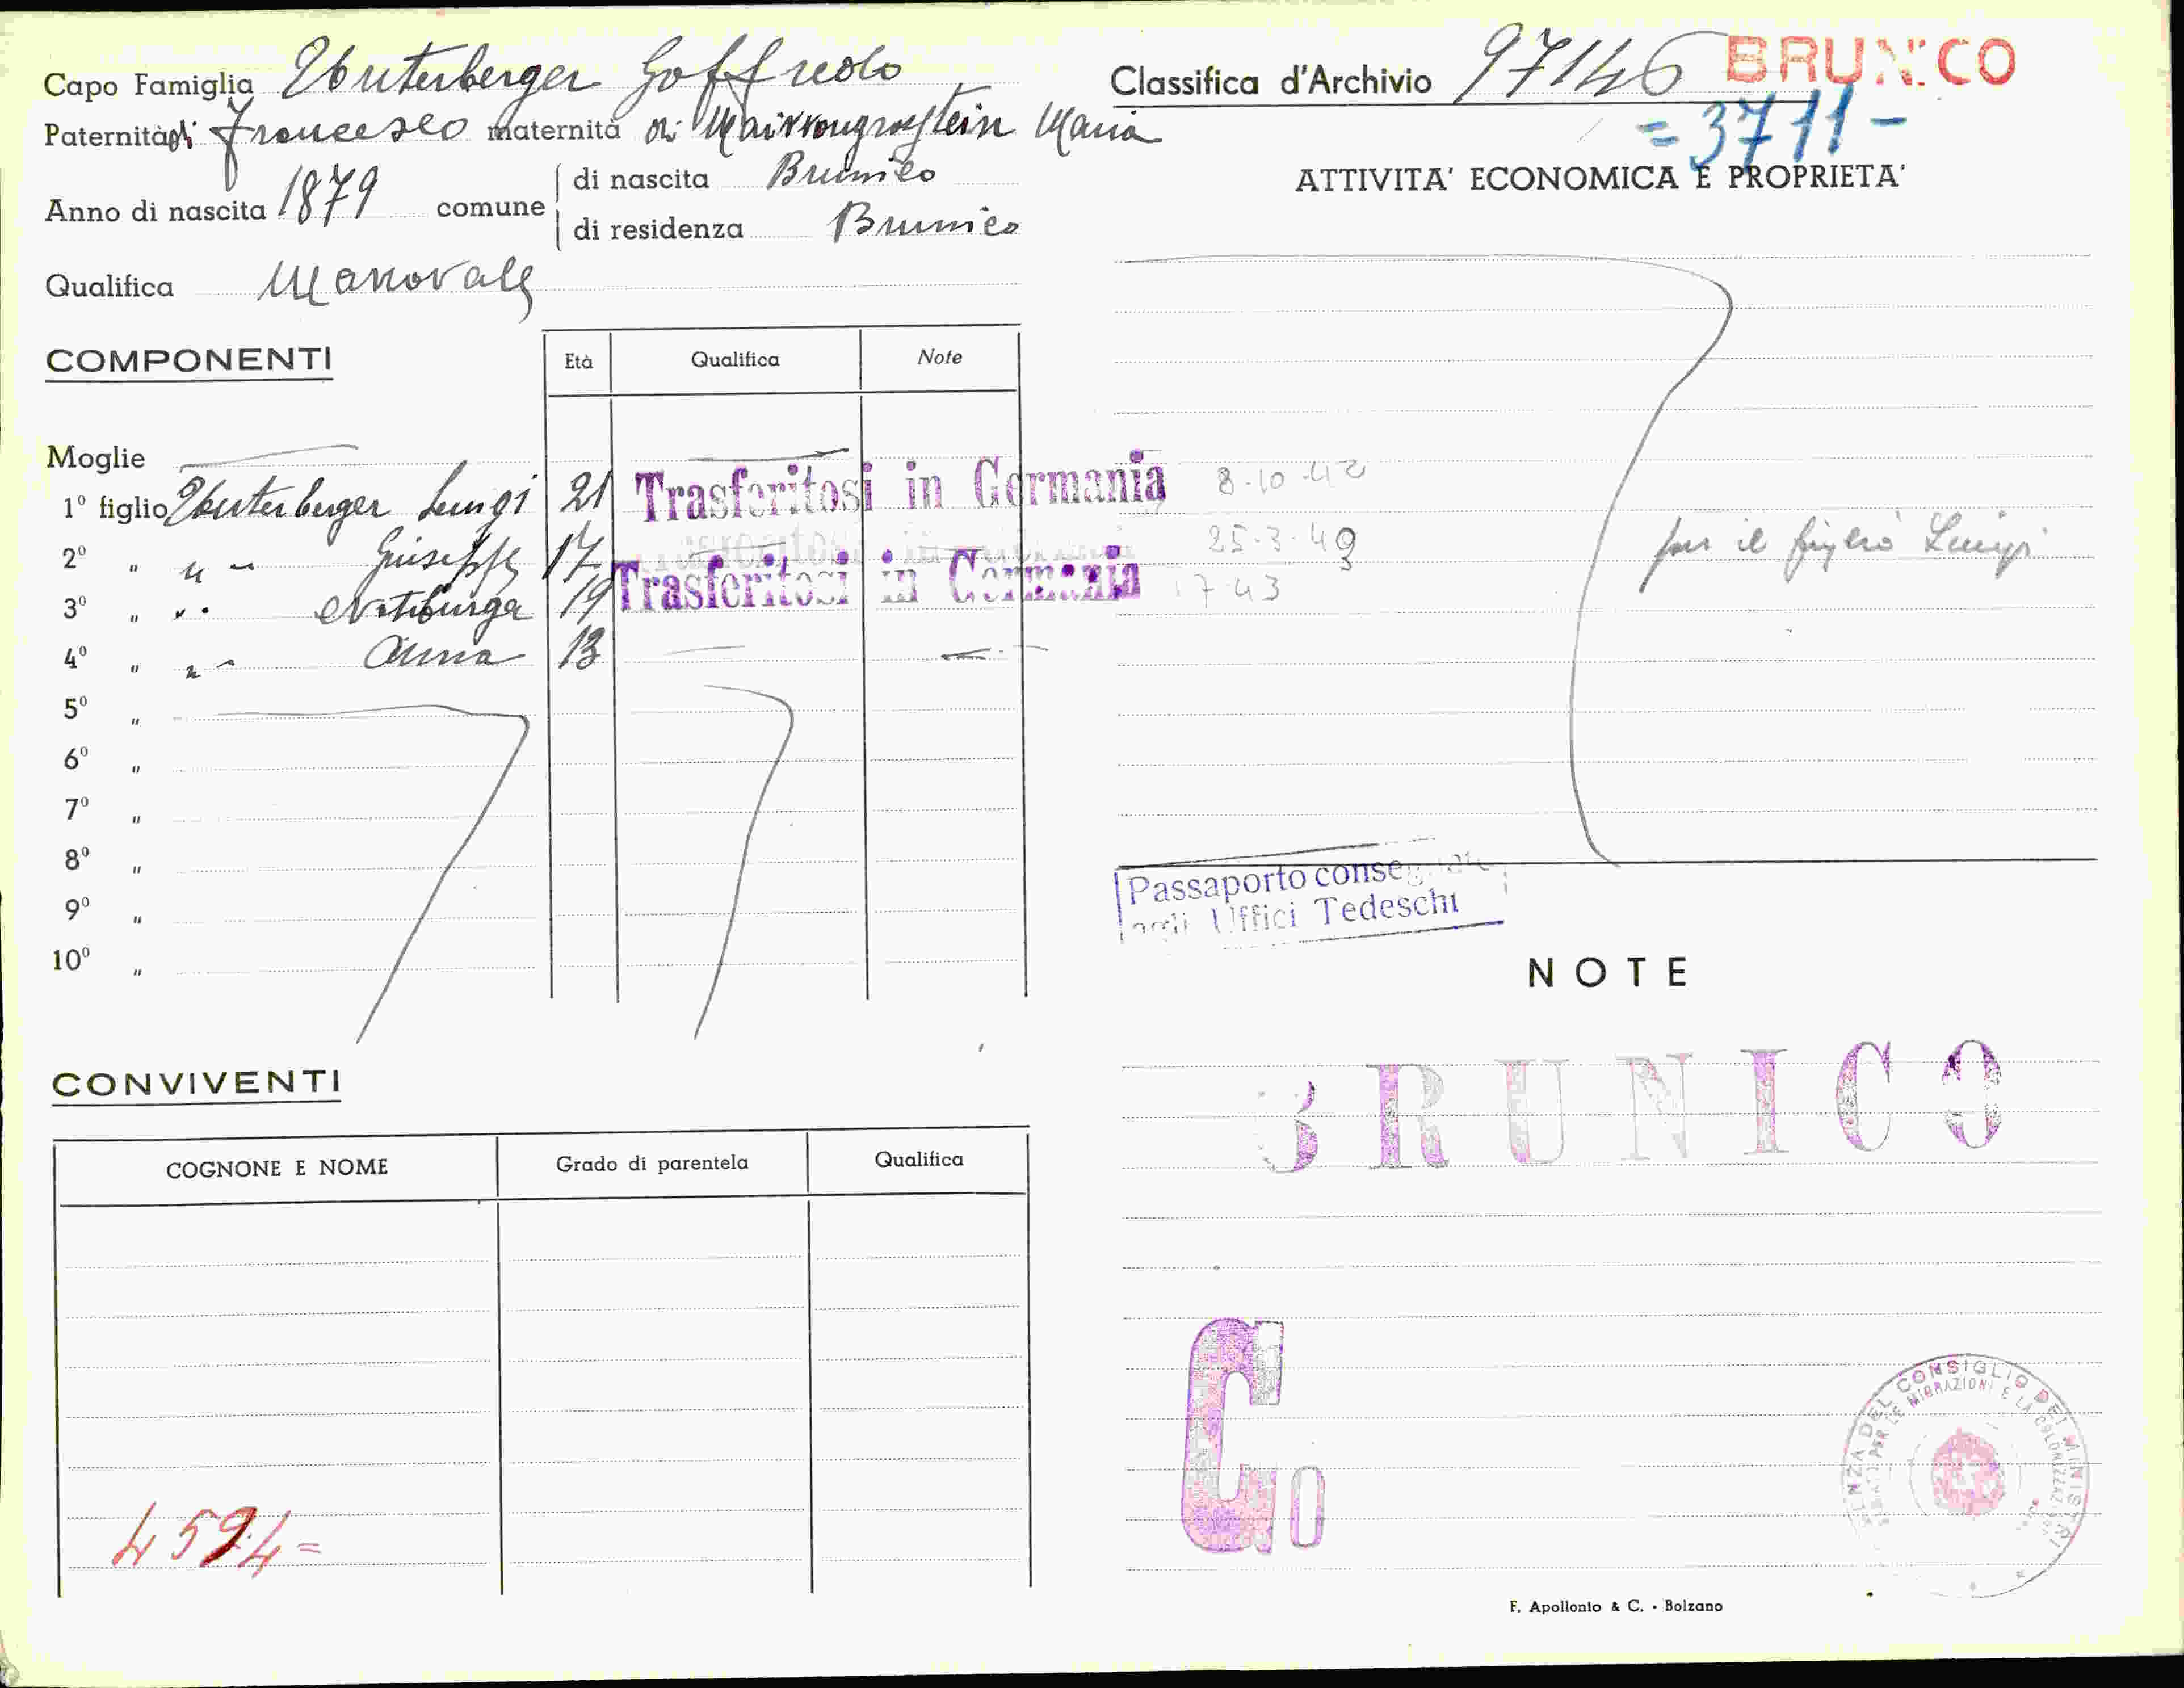 Capo Famiglia Unterberger Goffredo
Paternità di Francesco maternità di Maria
Anno di nascita 1879 comune di nascita Brunico
di residenza Brunico
Qualifica Manovale
COMPONENTI Età Qualifica Note
Moglie
1º figlio Unterberger Luigi 21 Trasferitosi in Germania 8-10-42
2º " " Giuseppe 17 25-3-43
3º " " Notburga 19 Trasferitosi in Germania 7-43
4º " " Anna 13
5º "
6º "
7º "
8º "
9º "
10º "
CONVIVENTI
COGNONE E NOME Grado di parentela Qualifica
4594=
Classifica d'Archivio 97146 BRUNICO
=3711-
ATTIVITA' ECONOMICA E PROPRIETA'
per il figlio Luigi
Passaporto consegnato
agli Uffici Tedeschi
NOTE
BRUNICO
Go
CONSIGLIO DEI MINISTRI
PER LE MIGRAZIONI E LA COLONIZZAZIONE
F. Apollonio & C. - Bolzano